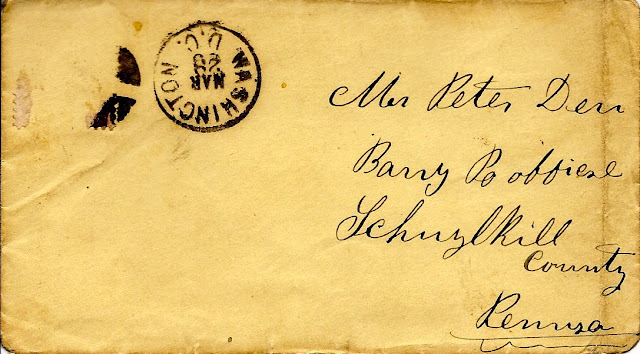 WASHINGTON D.C.
MAR
28
Mr Peter Derr
Barry Po offiese
Schuylkill
County
Pennsa